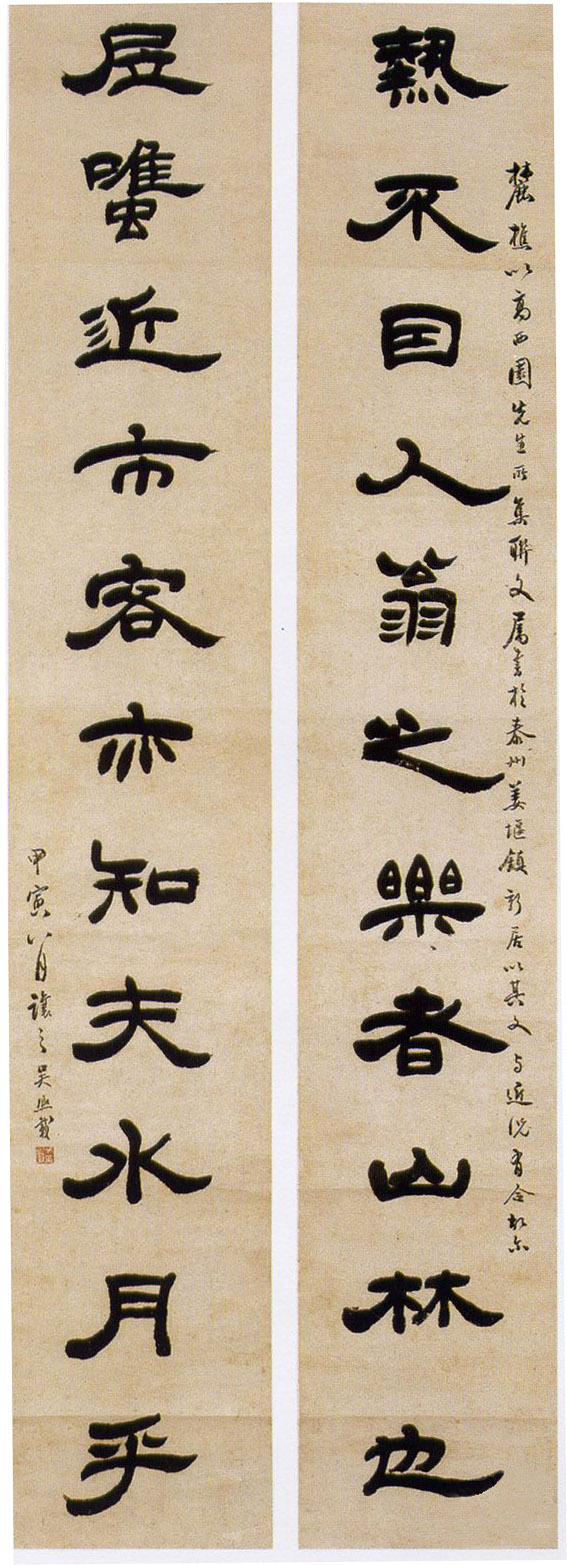 麓樵以高西園先生所集聯文屬書於泰州姜堰鎮新居以其文与近況有合故尔
熱不因人翁之樂者山林也
居雖近市客亦知夫水月乎
甲寅八月讓之吳熙載